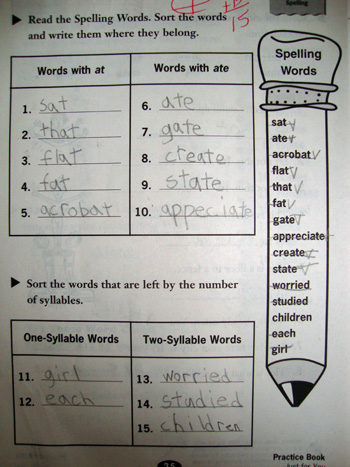 Spelling
15
Read the Spelling Words. Sort the words
and write them where they belong.
Words with at
Words with ate
1. sat
2. that
3. flat
4. fat
5. acrobat
6. ate
7. gate
8. create
9. state
10. appeciate
Sort the words that are left by the number
of syllables.
One-Syllable Words
Two-Syllable Words
11. girl
12. each
13. worried
14. studied
15. children
Spelling
Words
sat
ate
acrobat
flat
that
fat
gate
appreciate
create
state
worried
studied
children
each
girl
35
Practice Book
Just for You